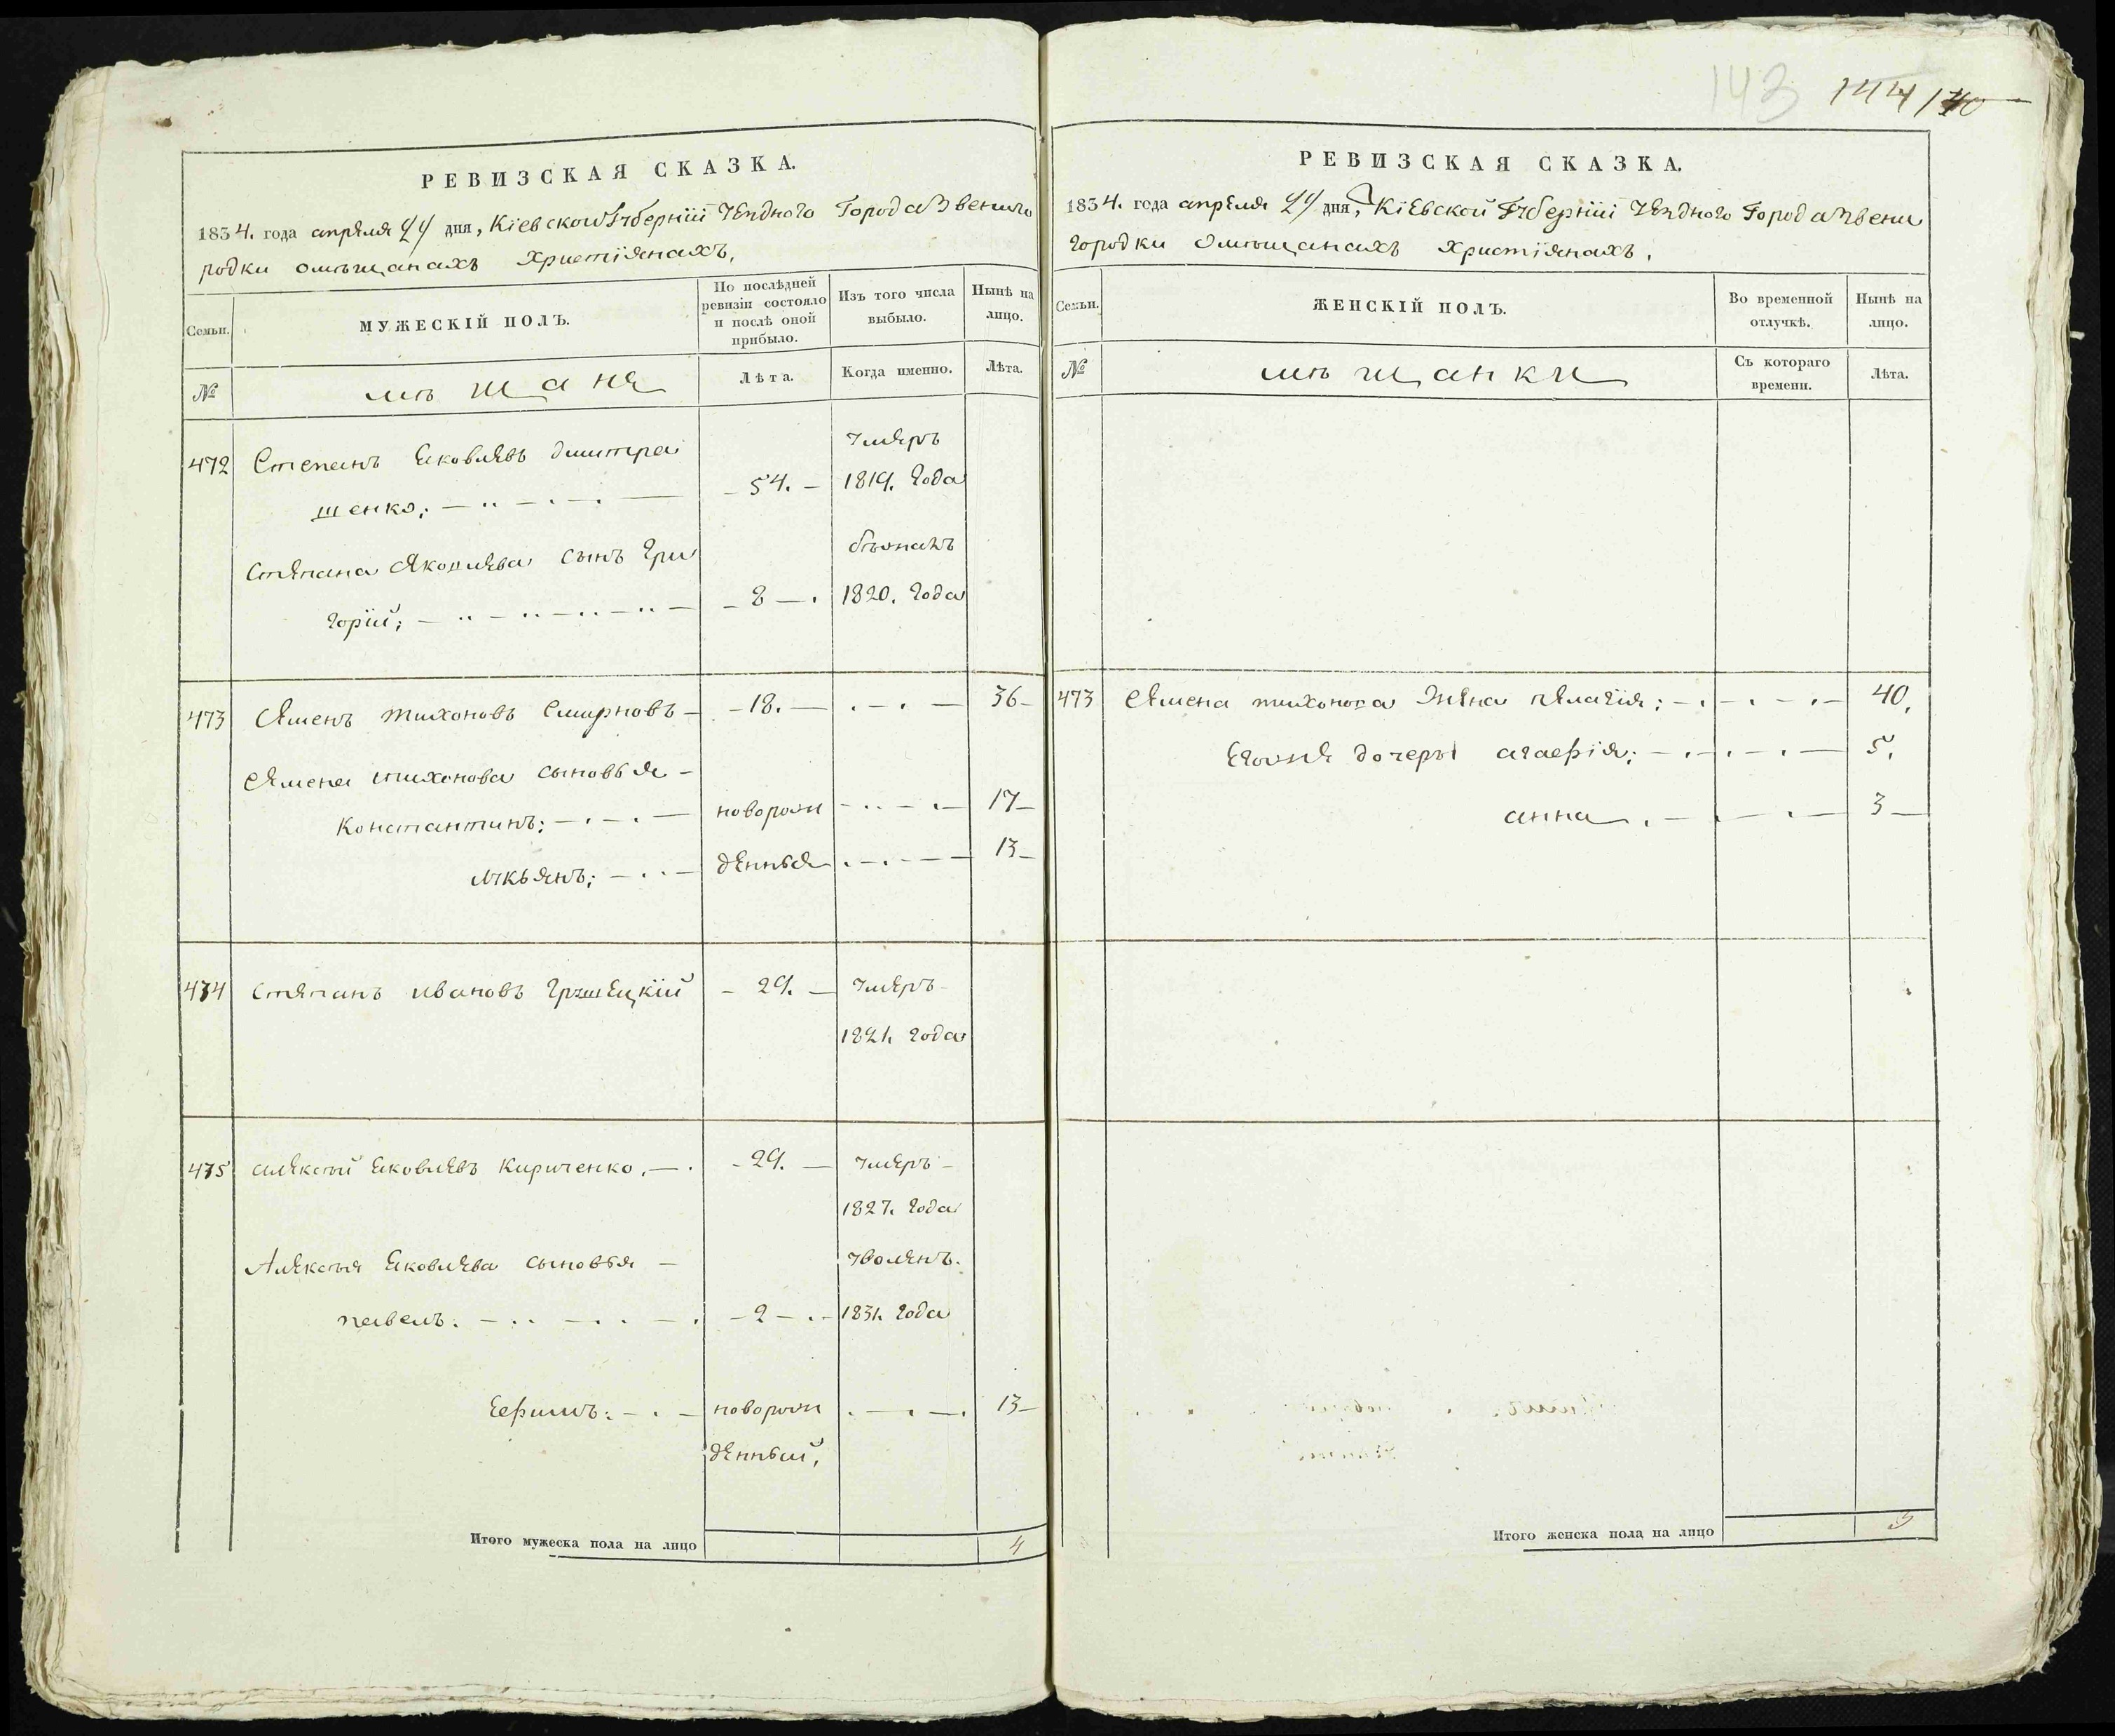 143 144
РЕВИЗСКАЯ СКАЗКА.
1834. года апреля 24 дня, Кіевской Губерніи Уезднаго Города Звениго
родки омѣщанахъ христіянахъ,
Семьи.
МУЖЕСКІЙ ПОЛЪ.
По послѣдней
ревизіи состояло
и послѣ оной
прибыло.
Изъ того числа
выбыло.
Нынѣ на
лицо.
№
мѣщане
Лѣта.
Когда именно.
Лѣта.
472 Степанъ Яковлевъ дмитра умеръ
шенко; — 54. — 1819. года
Степана Яковлева сынъ Гри бѣжалъ
горіи; — 8 — 1820. года
473 Семенъ тихоновъ Смирновъ — 18. — 36
Семена тихонова сыновья —
Константинъ; — новорож — 17
лукьянъ; — денныя — 13
474 Степанъ ивановъ — 29. — умеръ
1821. года
475 алексѣй Яковлевъ Кириченко. — 29. — умеръ —
1827. года
Алексѣя Яковлева сыновья — уволенъ.
павелъ. — 2 — 1831. года
Ефимъ: — новорож — 13
денный,
Итого мужеска пола на лицо 4
РЕВИЗСКАЯ СКАЗКА.
1834. года апреля 24 дня, Кіевской Губерніи Уезднаго Города Звени
городки омѣщанахъ христіянахъ,
Семьи.
ЖЕНСКІЙ ПОЛЪ.
Во временной
отлучкѣ.
Нынѣ на
лицо.
№
мѣщанки
Съ котораго
времени.
Лѣта.
473 Семена тихонова жена пелагія; — 40,
Егожъ дочеры агафія; — 5,
анна — 3
Итого женска пола на лицо 3